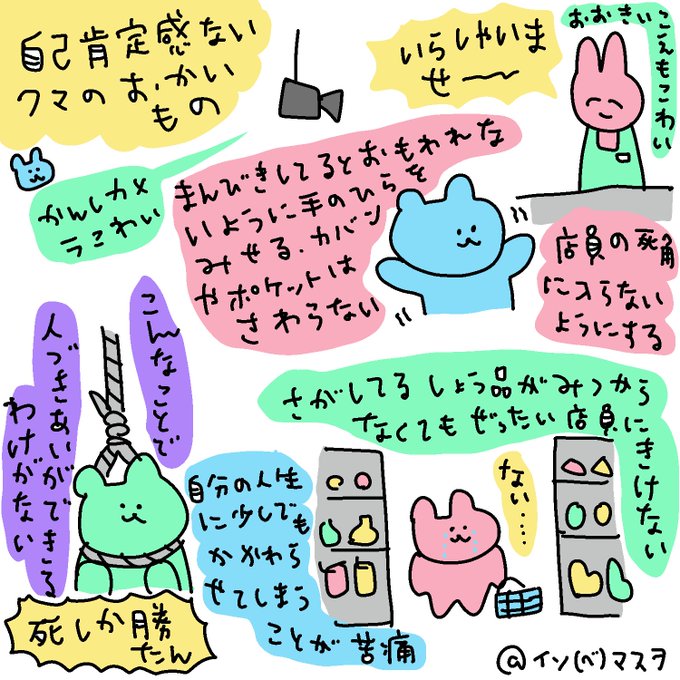 自己肯定感ない
クマのおかい
もの
いらしゃいま
せ〜〜
おおきい
こえもこわい
かんしカメ
ラこわい
まんびきしてるとおもわれな
いように手のひらを
みせる、カバン
やポケットは
さわらない
店員の死角
に入らない
ようにする
さがしてるしょう品がみつから
なくてもぜったい店員に
きけない
ない‥‥
自分の人生
に少しでも
かかわら
せてしまう
ことが苦痛
こんなことで
人づきあいができる
わけがない
死しか勝
たん
@イソ(べ)マスヲ